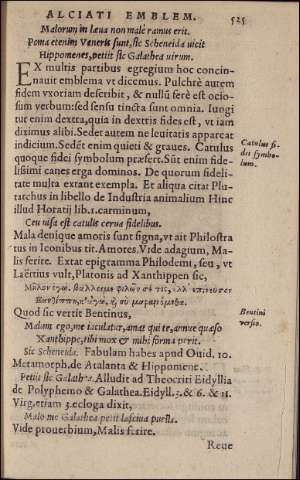 ALCIATI EMBLEM. 525
Malorum in læua non male ramus erit.
Poma etenim Veneris sunt, sic Scheneida uicit
Hippomenes, petiit sic Galathea uirum.
EX multis partibus egregium hoc concin-
nauit emblema vt dicemus. Pulchrè autem
fidem vxoriam describit, & nullũ ferè est ocio-
sum verbum: sed sensu tincta sunt omnia. Iungi
tur enim dextra, quia in dextris fides est, vt iam
diximus alibi. Sedet autem ne leuitatis appareat
indicium. Sedẽt enim quieti & graues. Catulus
quoque fidei symbolum præfert. Sũt enim fide-
lissimi canes erga dominos. De quorum fideli-
tate multa extant exempla. Et aliqua citat Plu-
tarchus in libello de Industria animalium Hinc
illud Horatij lib. 1. carminum,
Catulus fi-
dei symbo-
lum.
Ceu uisa est catulis cerua fidelibus.
Mala denique amoris sunt signa, vt ait Philostra
tus in Iconibus tit. Amores. Vide adagium, Ma-
lis ferire. Extat epigramma Philodemi, seu, vt
Laërtius vult, Platonis ad Xanthippen sic,
Quod sic vertit Bentinus,
Bentini
versio.
Malum ego, me iaculatur, amat qui te, annue quæso
Xanthippe, tibi mox & mihi forma perit.
Sic Scheneida. Fabulam habes apud Ouid. 10.
Metamorph. de Atalanta & Hippomene.
Petiit sic Galathea. Alludit ad Theocriti Eidyllia
de Polyphemo & Galathea. Eidyll. 3. & 6. & 11.
Virg. etiam 3. ecloga dixit,
Malo me Galathea petit lasciua puella.
Vide prouerbium, Malis ferire.
Reue